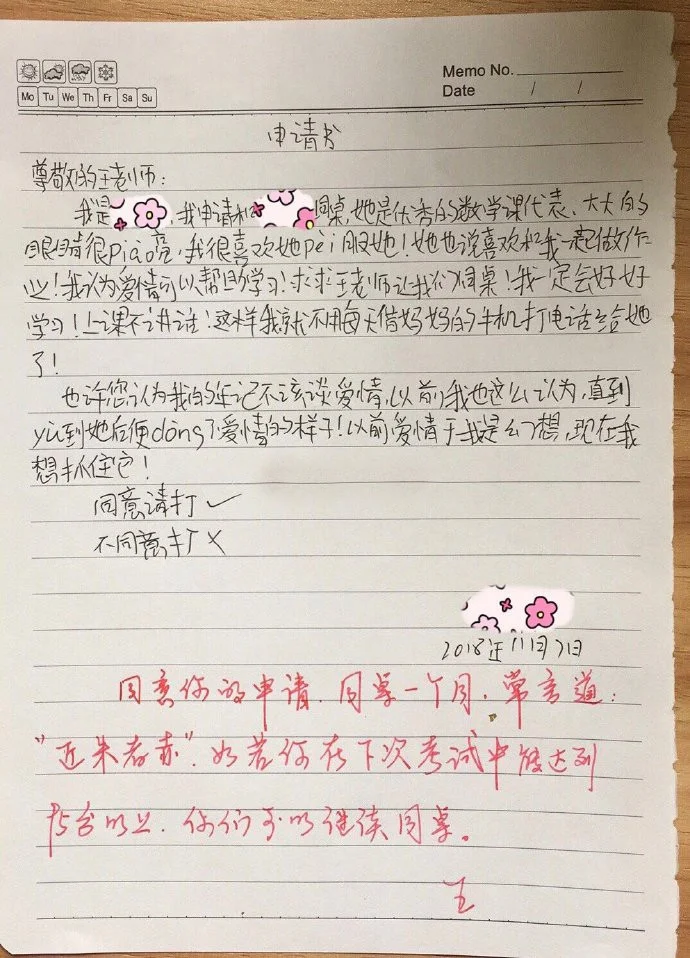 Memo No.
Mo Tu We Th Fr Sa Su
Date / /
申请书
尊敬的王老师：
我是 ，我申请和 同桌，她是优秀的数学课代表、大大的
眼睛很piào亮，我很喜欢她pèi服她！她也说喜欢和我一起做作
业！我认为爱情可以帮助学习！求求王老师让我们同桌！我一定会好好
学习！上课不讲话！这样我就不用每天借妈妈的手机打电话给她
了！
也许您认为我的年记不该谈爱情，以前我也这么认为，直到
yù到她后便dǒng了爱情的样子！以前爱情于我是幻想，现在我
想抓住它！
同意请打✓
不同意打×
2018年11月7日
同意你的申请，同桌一个月，常言道：
“近朱者赤”，如若你在下次考试中能达到
95分以上，你们可以继续同桌。
王